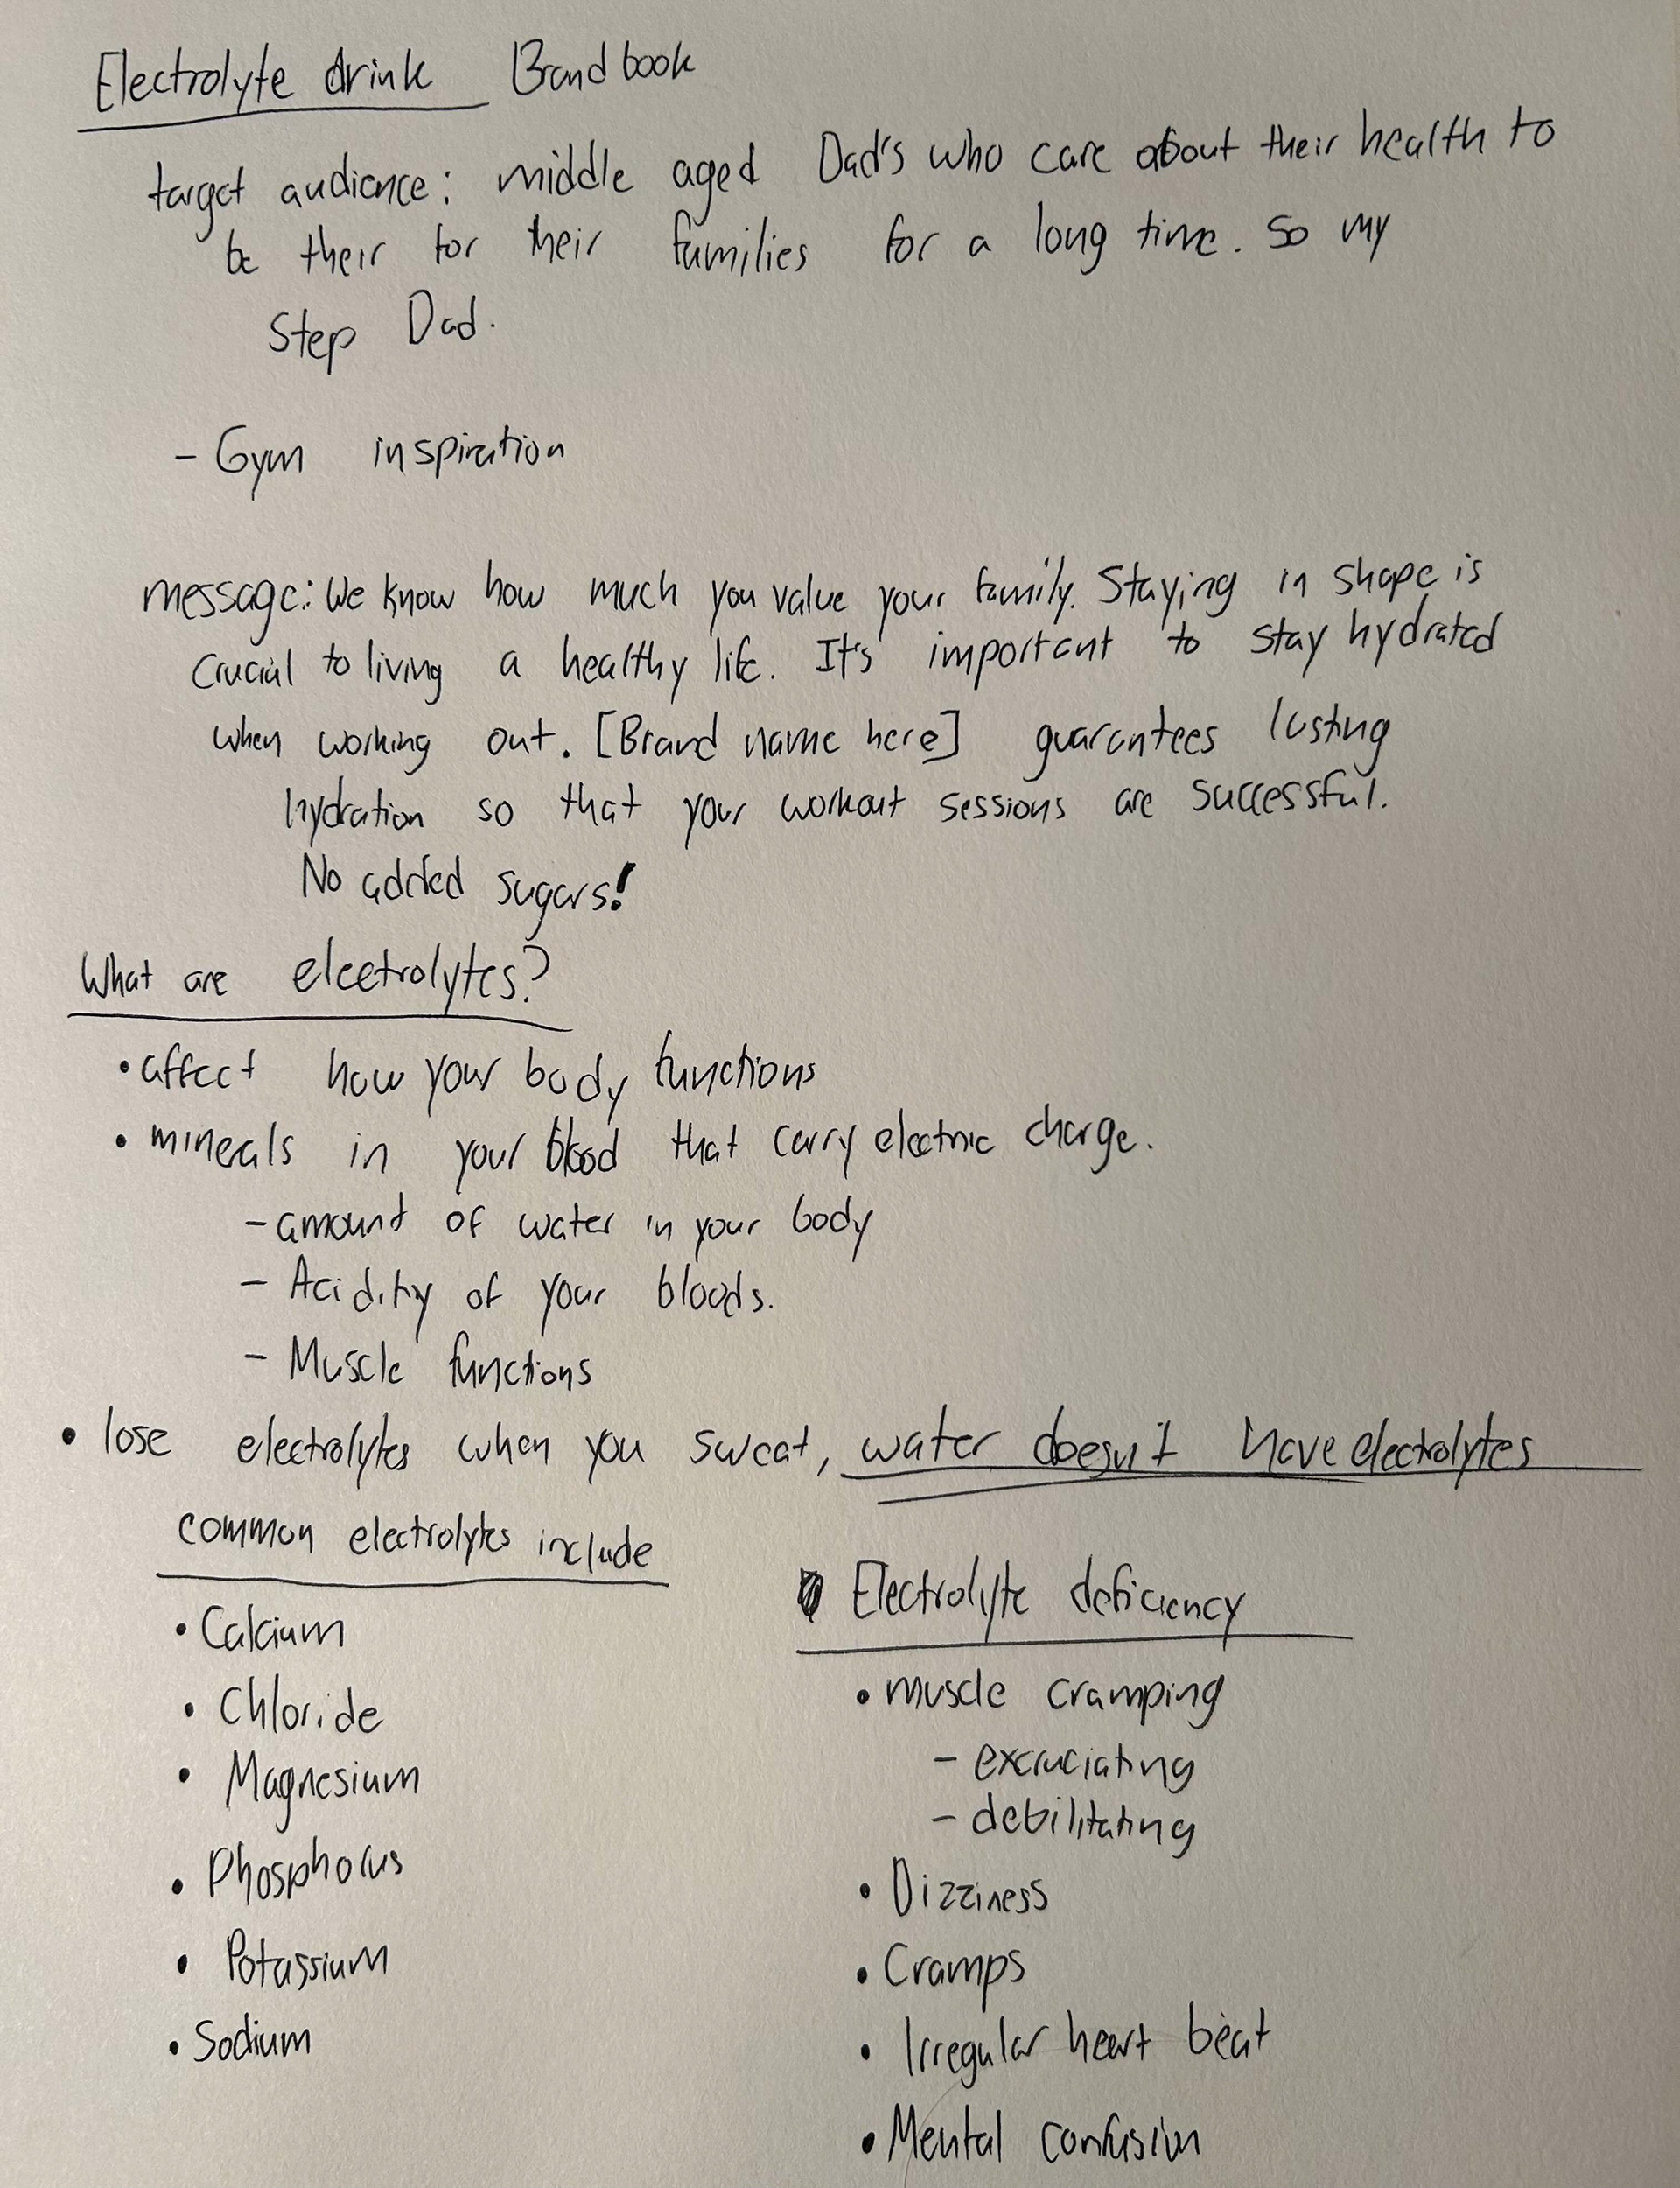 Electrolyte drink Brand book
target audience: middle aged Dad's who care about their health to
be their for their families for a long time. So my
Step Dad.
- Gym inspiration
message: We know how much you value your family. Staying in shape is
crucial to living a healthy life. It's important to stay hydrated
when working out. [Brand name here] guarantees lasting
hydration so that your workout sessions are successful.
No added sugars!
What are electrolytes?
• affect how your body functions
• minerals in your blood that carry electric charge.
- amount of water in your body
- Acidity of your bloods.
- Muscle functions
• lose electrolytes when you sweat, water doesn't have electrolytes
common electrolytes include
• Calcium
• Chloride
• Magnesium
• Phosphorus
• Potassium
• Sodium
Electrolyte deficiency
• muscle cramping
- excruciating
- debilitating
• Dizziness
• Cramps
• Irregular heart beat
• Mental confusion